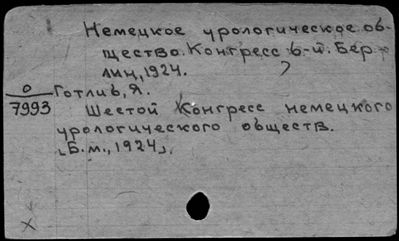 Немецкое урологическое об-
щество. Конгресс 6-й. Бер-
лин, 1924.
О
7993
Готлиб, Я.
Шестой Конгресс немецкого
урологического обществ.
[Б.м., 1924].